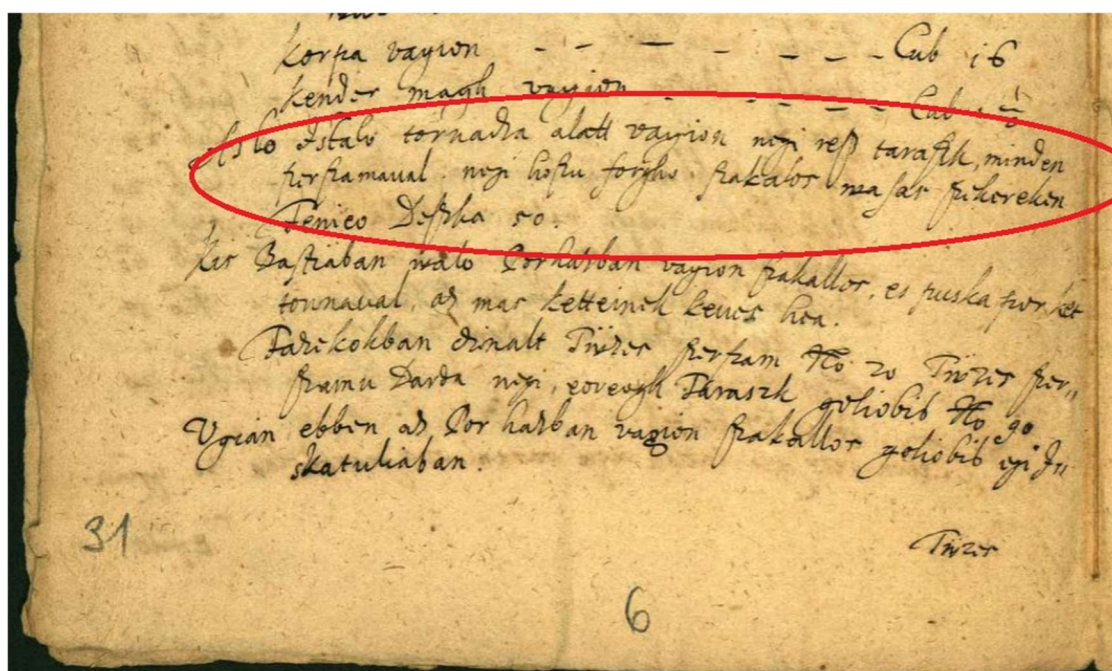 korpa vagion - - - - - - - Cub 16
kender magh vagion - - - - - Cub 1 1/2
Istalo tornacza alatt vagion negi resz taraszk, minden
szerszamaual. negi hoszu forgho szakalos wasas szekereken
Fenieo Deszka 50.
Kis Bastiaban walo Porhazban vagion szakallos, es puska por ket
tonnaual, az mas ketteinek keues hea.
Fazekokban czinalt Tüzes szerszam No 20 Tüzes szer„
szamu Darda negi, eoreogh Taraszk goliobis No 90
Vgian ebben az Por hazban vagion szakallos goliobis egi
skatuliaban.
Tüzes
31
6